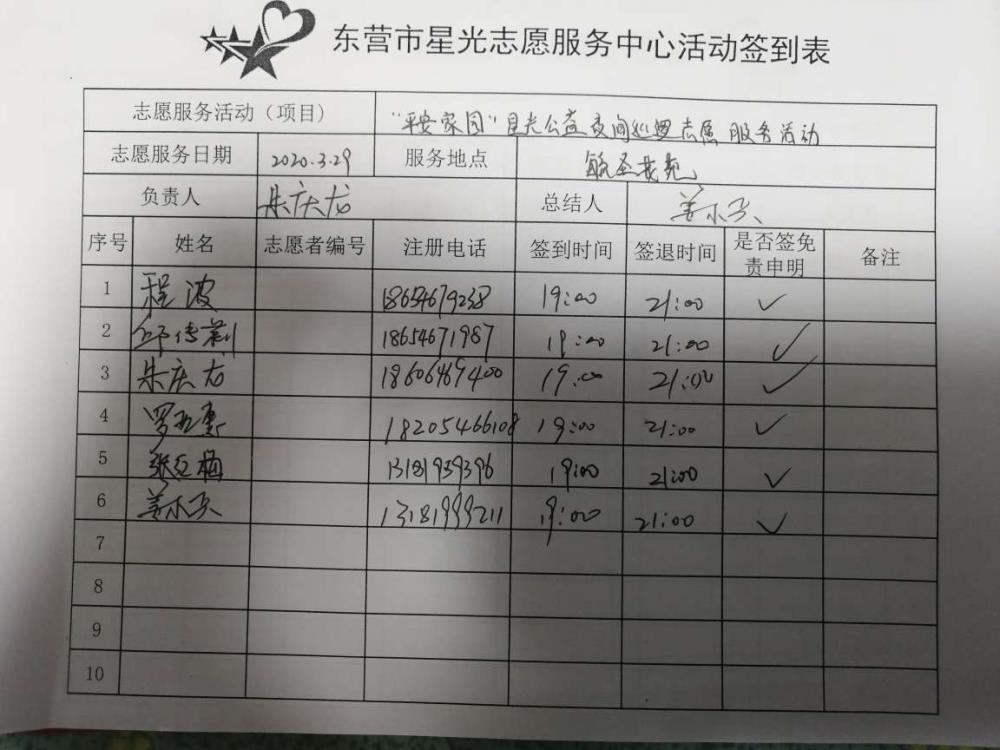 东营市星光志愿服务中心活动签到表
志愿服务活动（项目） "平安家园"星光公益夜间巡逻志愿服务活动
志愿服务日期 2020.3.29 服务地点
负责人 朱庆龙 总结人 姜小
序号 姓名 志愿者编号 注册电话 签到时间 签退时间 是否签免责申明 备注
1 程波 18654679238 19:00 21:00 ✓
2 邱传莉 18654671987 19:00 21:00 ✓
3 朱庆龙 18606469400 19:00 21:00 ✓
4 罗 惠 18205466108 19:00 21:00 ✓
5 张红梅 13181939396 19:00 21:00 ✓
6 姜小 13181999211 19:00 21:00 ✓
7
8
9
10